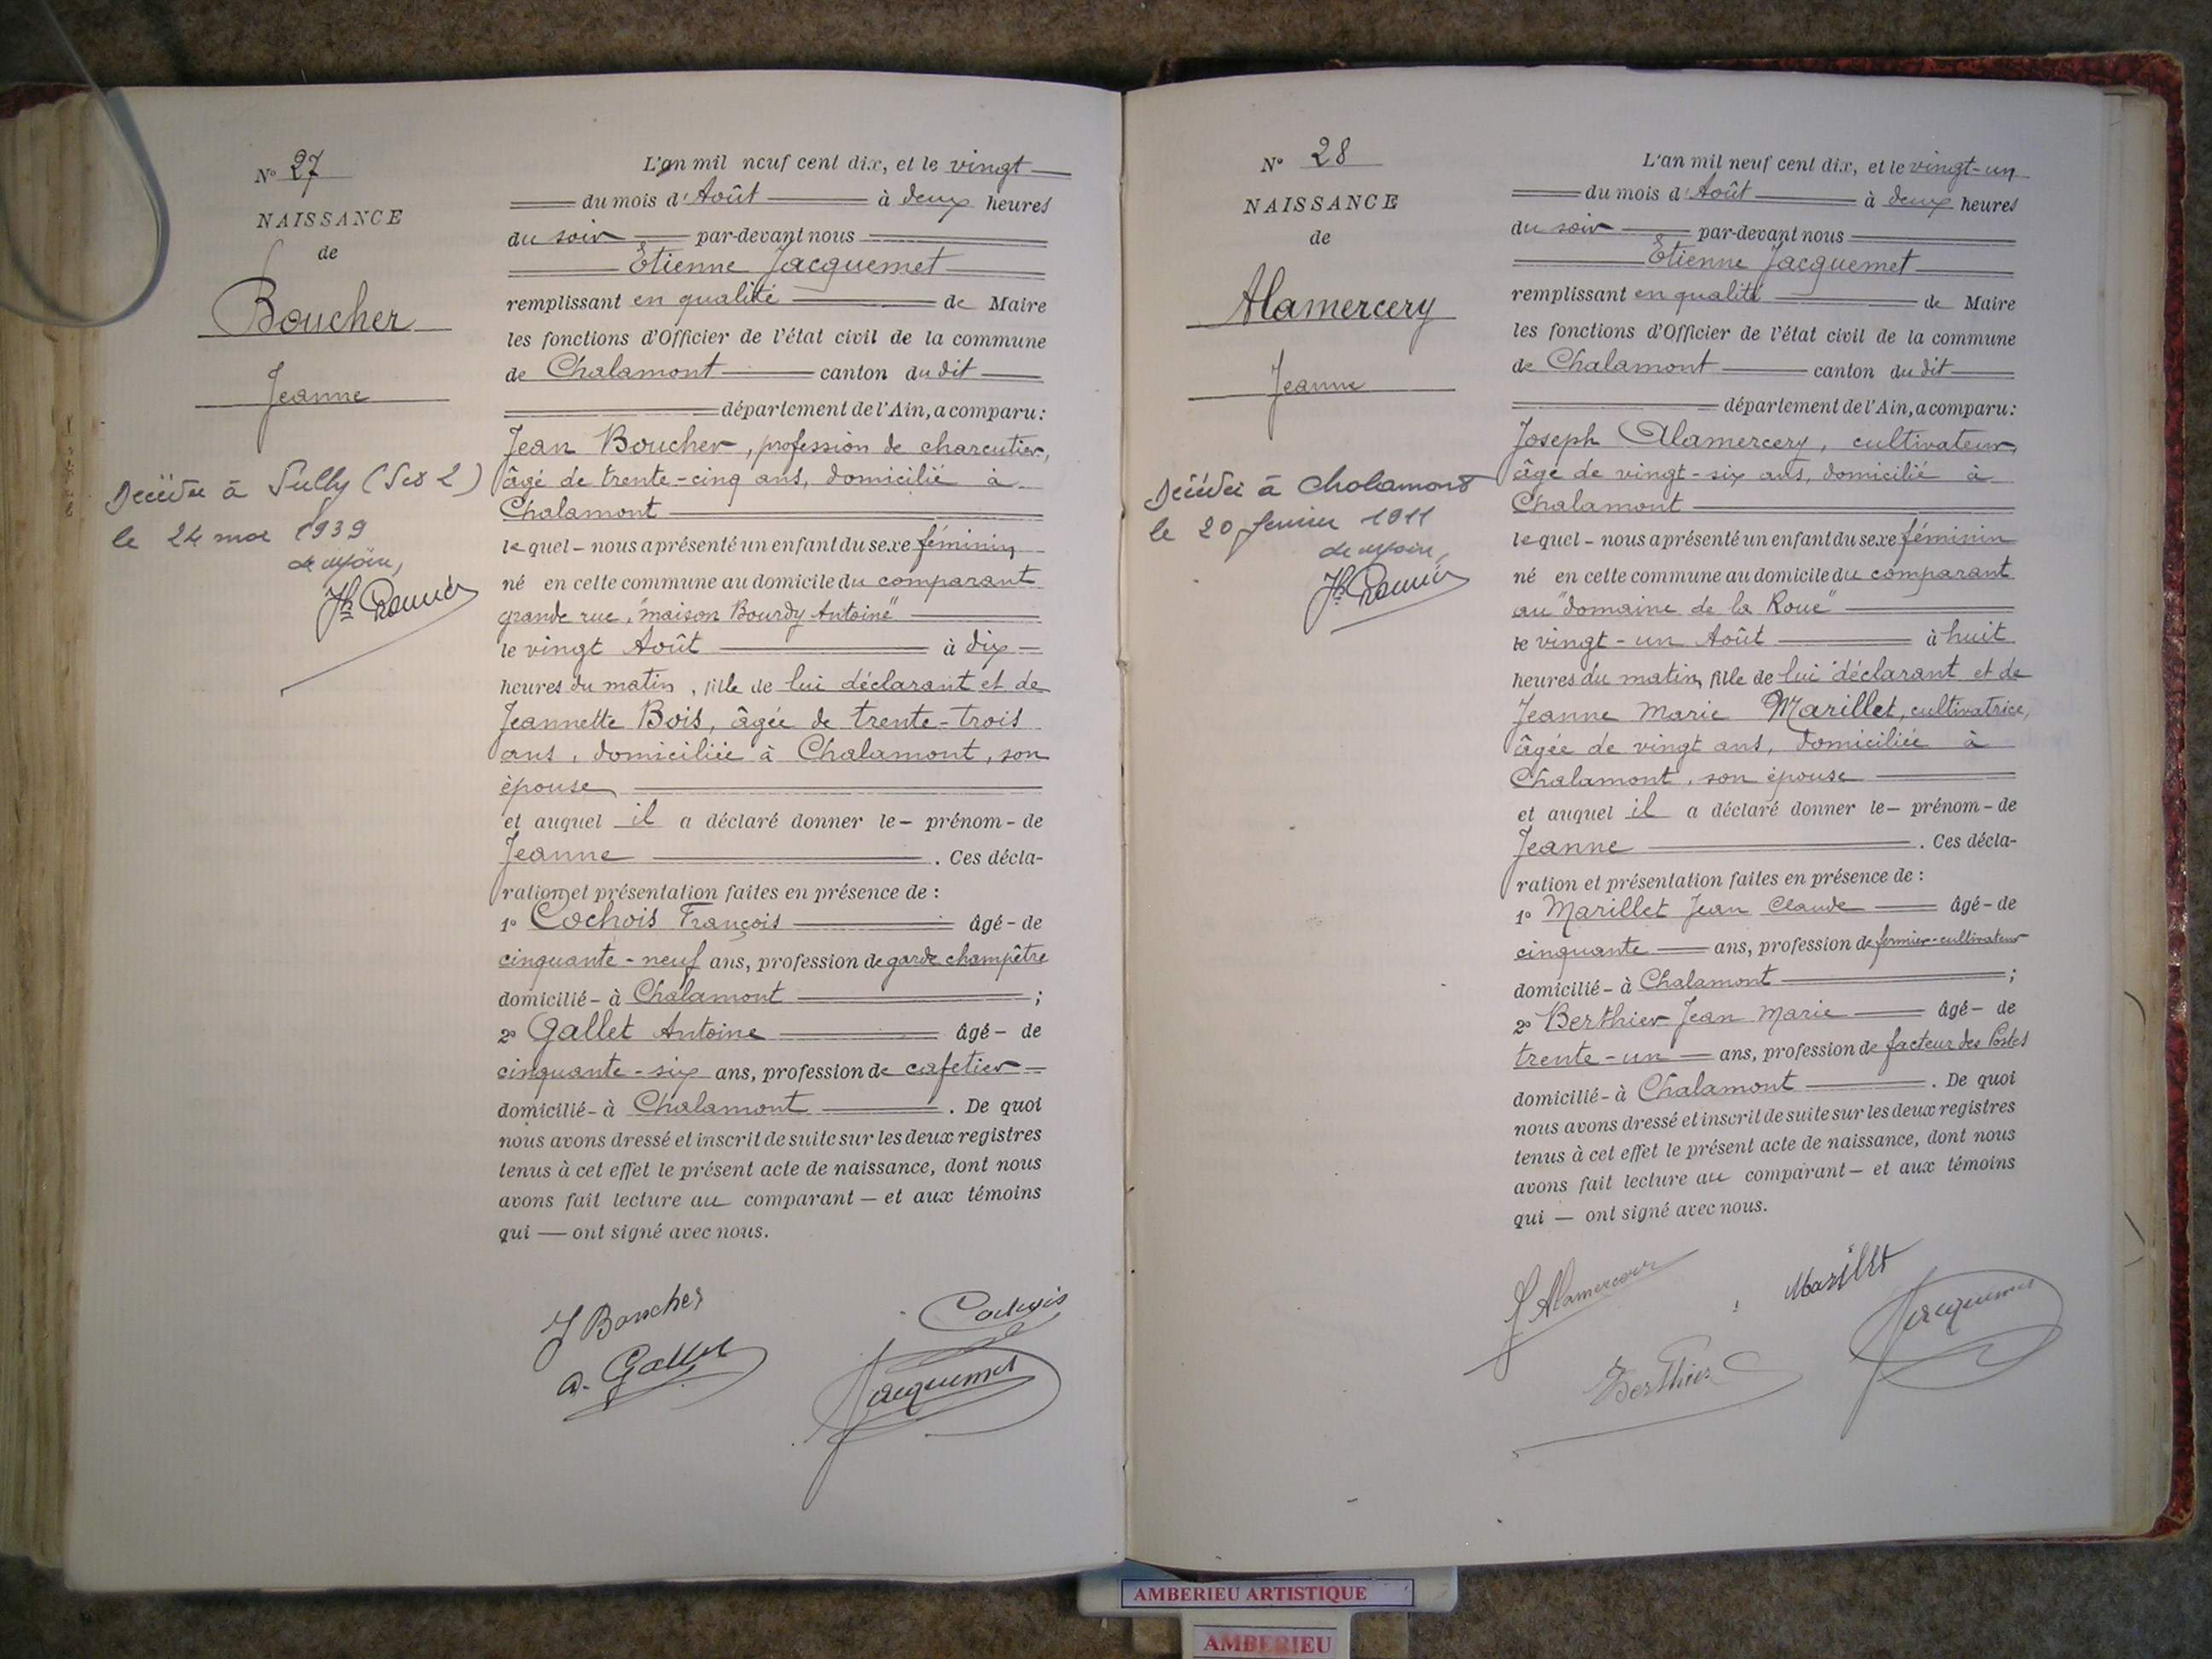 N° 27
NAISSANCE
de
Boucher
Jeanne
Décédée à Sully (S et L)
le 24 mai 1939
L'an mil neuf cent dix, et le vingt
du mois d'Août à deux heures
du soir par-devant nous
Etienne Jacquemet
remplissant en qualité de Maire
les fonctions d'Officier de l'état civil de la commune
de Chalamont canton du dit
département de l'Ain, a comparu:
Jean Boucher, profession de charcutier,
âgé de trente-cinq ans, domicilié à
Chalamont
lequel - nous a présenté un enfant du sexe féminin
né en cette commune au domicile du comparant
grande rue, "maison Bourdy Antoine"
le vingt Août à dix
heures du matin, fille de lui déclarant et de
Jeannette Bois, âgée de trente-trois
ans, domiciliée à Chalamont, son
épouse
et auquel il a déclaré donner le - prénom - de
Jeanne . Ces décla-
ration et présentation faites en présence de :
1° Cochois François âgé - de
cinquante-neuf ans, profession de garde champêtre
domicilié - à Chalamont ;
2° Gallet Antoine âgé - de
cinquante-six ans, profession de cafetier
domicilié - à Chalamont . De quoi
nous avons dressé et inscrit de suite sur les deux registres
tenus à cet effet le présent acte de naissance, dont nous
avons fait lecture au comparant — et aux témoins
qui — ont signé avec nous.
J Boucher
Cochois
A. Gallet
Jacquemet
N° 28
NAISSANCE
de
Alamercery
Jeanne
Décédée à Chalamont
le 20 février 1911
L'an mil neuf cent dix, et le vingt-un
du mois d'Août à deux heures
du soir par-devant nous
Etienne Jacquemet
remplissant en qualité de Maire
les fonctions d'Officier de l'état civil de la commune
de Chalamont canton du dit
département de l'Ain, a comparu:
Joseph Alamercery, cultivateur,
âgé de vingt-six ans, domicilié à
Chalamont
lequel - nous a présenté un enfant du sexe féminin
né en cette commune au domicile du comparant
au "domaine de la Roue"
le vingt-un Août à huit
heures du matin, fille de lui déclarant et de
Jeanne Marie Marillet, cultivatrice,
âgée de vingt ans, domiciliée à
Chalamont, son épouse
et auquel il a déclaré donner le - prénom - de
Jeanne . Ces décla-
ration et présentation faites en présence de :
1° Marillet Jean Claude âgé - de
cinquante ans, profession de fermier-cultivateur
domicilié - à Chalamont ;
2° Berthier Jean Marie âgé - de
trente-un ans, profession de facteur des Postes
domicilié - à Chalamont . De quoi
nous avons dressé et inscrit de suite sur les deux registres
tenus à cet effet le présent acte de naissance, dont nous
avons fait lecture au comparant — et aux témoins
qui — ont signé avec nous.
J Alamercery
Marillet
Jacquemet
Berthier
AMBERIEU ARTISTIQUE
AMBERIEU